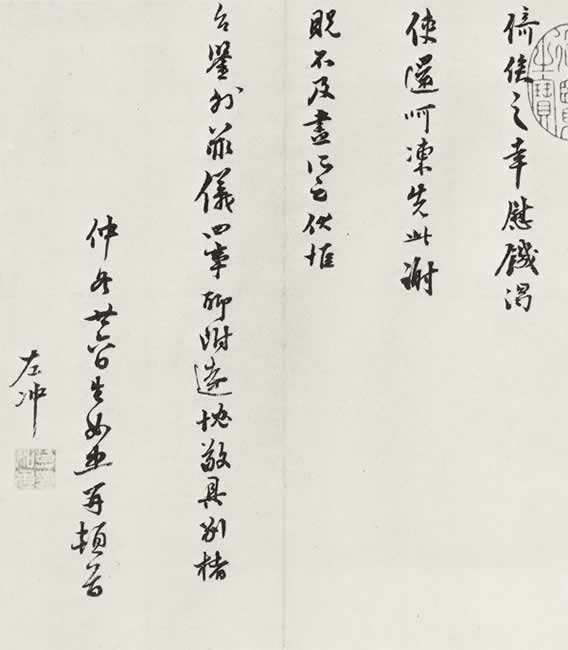 倚俟之幸慰饑渴
使還呵凍先此謝
貺不及盡所言伏惟
台鑒外菲儀四事聊附遠忱敬具別楮
仲冬廿六日生再頓首
左冲